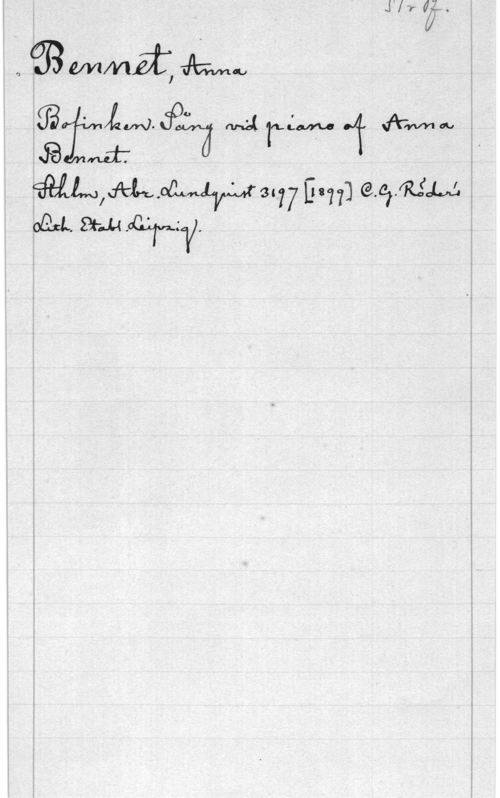 Bennet, Anna
Bofinken. Sång vid piano af Anna
Bennet.
Sthlm, Abr. Lundquist 3197 [1899] C.G. Röder's
Lith. Etabl. Leipzig).